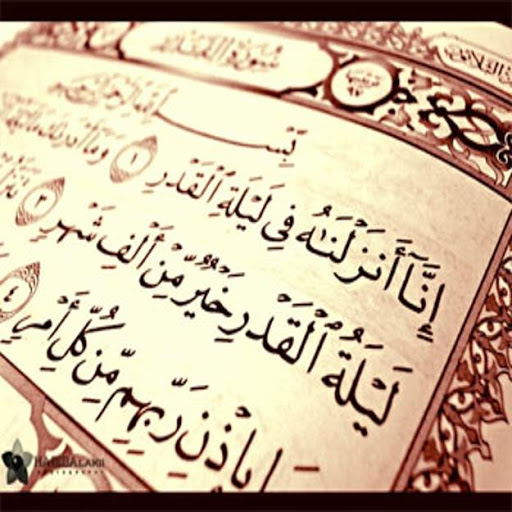 سُورَةُ القَدْرِ
بِسْمِ اللَّهِ الرَّحْمَٰنِ الرَّحِيمِ
إِنَّآ أَنزَلْنَٰهُ فِى لَيْلَةِ ٱلْقَدْرِ ١ وَمَآ أَدْرَىٰكَ مَا لَيْلَةُ
لَيْلَةُ ٱلْقَدْرِ خَيْرٌ مِّنْ أَلْفِ شَهْرٍ ٣
بِإِذْنِ رَبِّهِم مِّن كُلِّ أَمْرٍ ٤